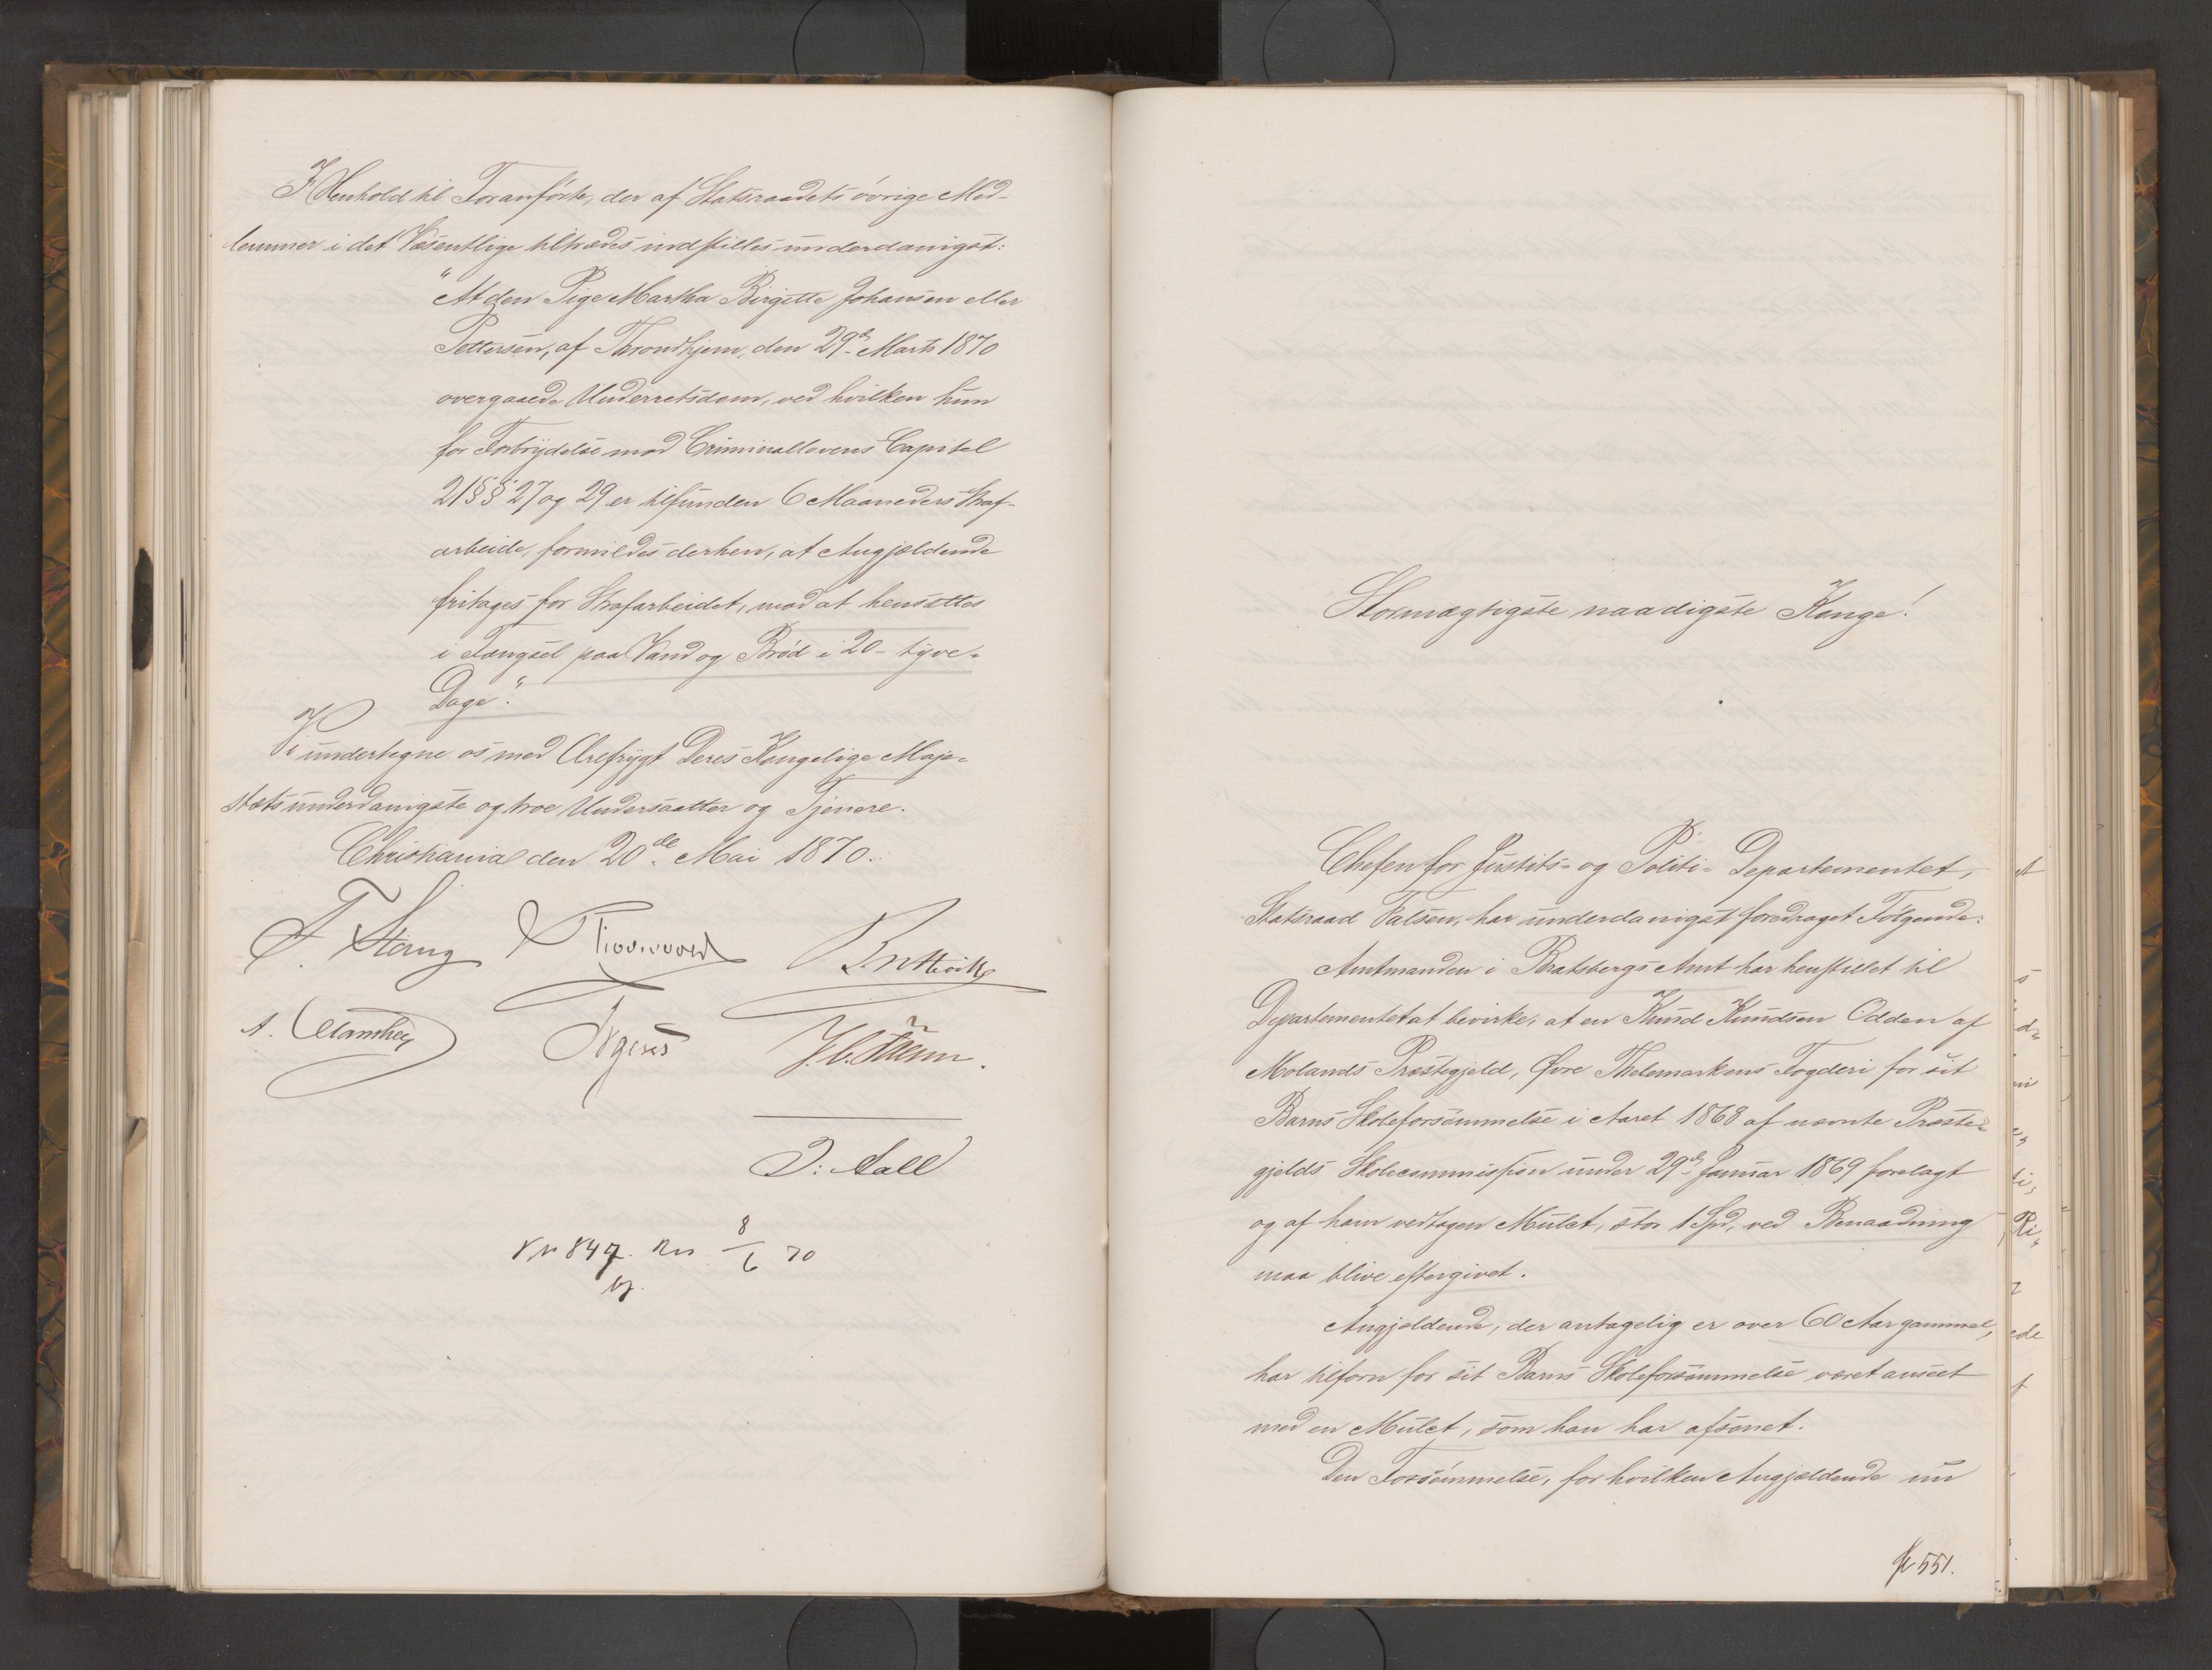 I Henhold til Foranførte, der af Statsraadets øvrige Med-
lemmer i det Væsentlige tiltrædes indstilles underdanigst:
"At den Pige Martha Birgitte Johansen eller
Pettersen, af Throndhjem, den 29de Marts 1870
overgaaede Underretsdom, ved hvilken hun
for Forbrydelse mod Criminallovens Capitel
21 §§ 27 og 29 er tilfunden 6 Maaneders Straf-
arbeide, formildes derhen, at Angjældende
fritages for Strafarbeidet, mod at hensættes
i Fængsel paa Vand og Brød i 20 - tyve -
Dage".
Vi undertegne os med Ærefrygt Deres Kongelige Maje-
stæts underdanigste og troe Undersaatter og Tjenere.
Christiania den 20de Mai 1870.
F. Stang
Irgens
O: Aall
No 847. 8/6 70
Stormægtigste naadigste Konge!
Chefen for Justits- og Politi- Departementet,
Statsraad Falsen, har underdanigst foredraget Følgende:
Amtmanden i Bratsbergs Amt har henstillet til
Departementet at bevirke, at en Knud Knudsen Odden af
Molands Præstegjeld, Øvre Thelemarkens Fogderi for sit
Barns Skoleforsømmelse i Aaret 1868 af nævnte Præste-
gjelds Skolecommission under 29de Januar 1869 forelagt
og af ham vedtagen Mulct, stor 1 Spd, ved Benaadning
maa blive eftergivet.
Angjældende, der antagelig er over 60 Aar gammel,
har tilforn for sit Barns Skoleforsømmelse været anseet
med en Mulct, som han har afsonet.
Den Forsømmelse, for hvilken Angjældende nu
551.